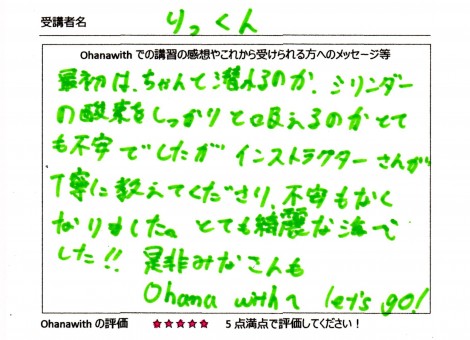 受講者名 りっくん
Ohanawith での講習の感想やこれから受けられる方へのメッセージ等
最初は、ちゃんと潜れるのか、シリンダー
の酸素をしっかりと吸えるのかとて
も不安でしたが インストラクターさんが
丁寧に教えてくださり、不安もなく
なりました。とても綺麗な海で
した!! 是非みなさんも
Ohana withへ let's go!
Ohanawith の評価 ★★★★★ 5 点満点で評価してください！